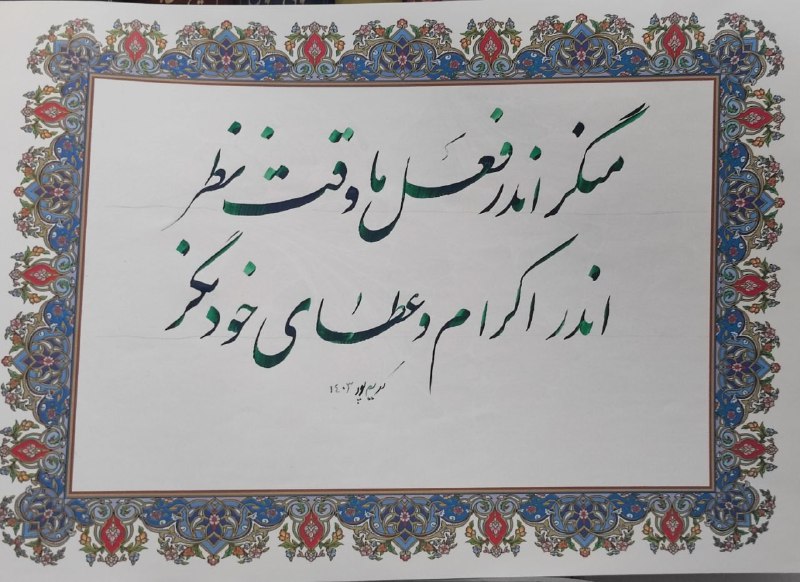 منگر اندر فعل ما وقت نظر
اندر اکرام و عطای خود نگر
کریم پور ۱۴۰۳